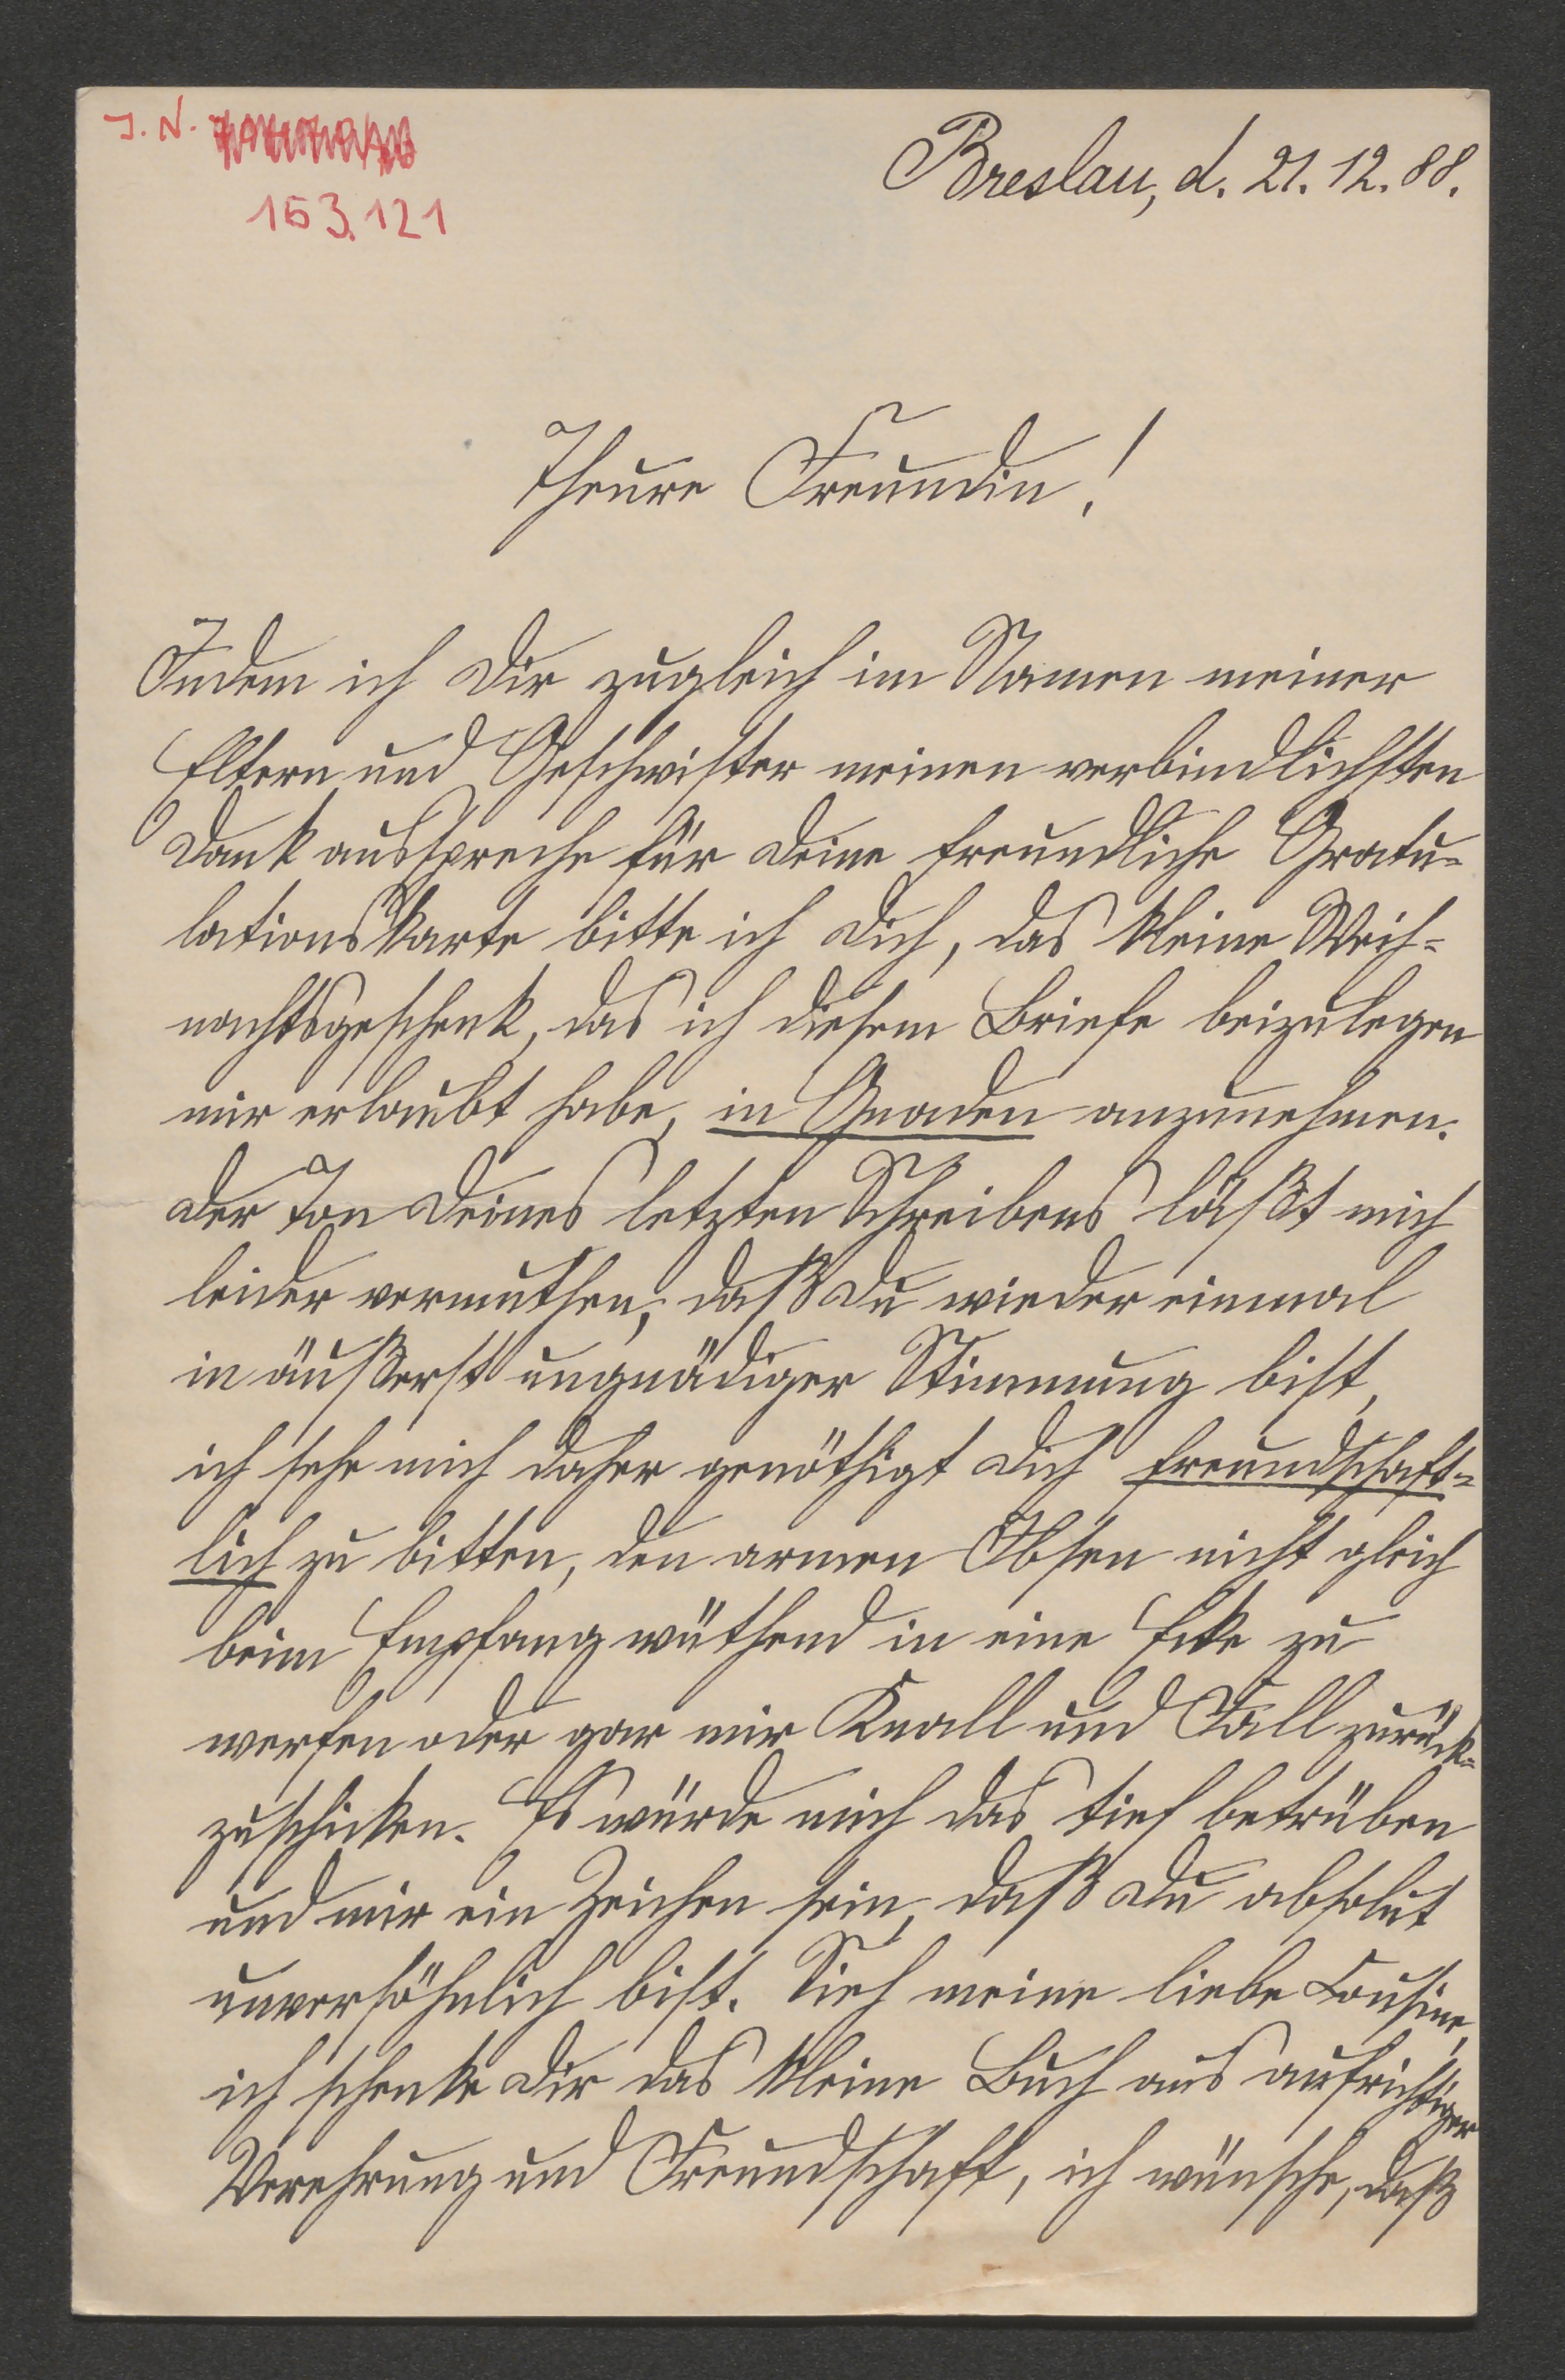 J. N.
153.121
Breslau, d. 21. 12. 88.
Theure Freundin!
Indem ich Dir zugleich im Namen meiner
Eltern und Geschwister meinen verbindlichsten
Dank ausspreche für Deine freundliche Gratu-
lationskarte bitte ich Dich, das kleine Weih-
nachtsgeschenk, das ich diesem Briefe beizulegen
mir erlaubt habe, in Gnaden anzunehmen.
Der Ton Deines letzten Schreibens läßt mich
leider vermuthen, daß Du wieder einmal
in äußerst ungnädiger Stimmung bist,
ich sehe mich daher genöthigt Dich freundschaft-
lich zu bitten, den armen Ibsen nicht gleich
beim Empfang wüthend in eine Ecke zu
werfen oder gar mir Knall und Fall zurück-
zuschicken. Es würde mich das tief betrüben
und mir ein Zeichen sein, daß Du absolut
unversöhnlich bist. Sieh meine liebe Cousine,
ich schenke Dir das kleine Buch aus aufrichtiger
Verehrung und Freundschaft, ich wünsche, daß